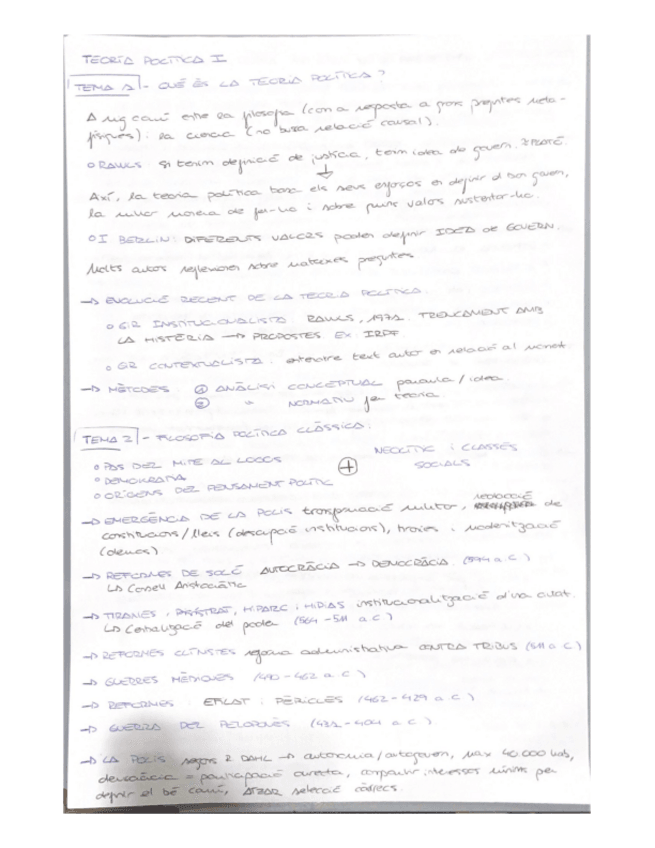 TEORÍA POLÍTICA I
TEMA 1 - QUÈ ÉS LA TEORIA POLÍTICA?
A mig camí entre la filosofia (com a resposta a grans preguntes meta-
físiques) i la ciència (no busca relació causal).
o RAWLS: Si tenim definició de justícia, tenim idea de govern.
↓
Així, la teoria política basa els seus esforços en definir el bon govern,
la millor manera de fer-ho i sobre quins valors sustentar-ho.
o I BERLIN: DIFERENTS VALORS poden definir IDEA de GOVERN.
Molts autors reflexionen sobre mateixes preguntes
→ EVOLUCIÓ RECENT DE LA TEORIA POLÍTICA.
o GIR INSTITUCIONALISTA: RAWLS, 1971. TRENCAMENT AMB
LA HISTÒRIA → PROPOSTES Ex. IRPF
o GIR CONTEXTUALISTA: entendre text autor en relació al moment.
→ MÈTODES: ① ANÀLISI CONCEPTUAL paraula/idea
② " NORMATIU fer teoria.
TEMA 2 - FILOSOFIA POLÍTICA CLÀSSICA:
o PAS DEL MITE AL LOGOS
o DEMOKRATIA
o ORÍGENS DEL PENSAMENT POLÍTIC
+ NEOLÍTIC i CLASSES
SOCIALS
→ EMERGÈNCIA DE LA POLIS transformació militar, redacció de
constitucions/lleis (institucions), i modernització
(demos)
→ REFORMES DE SOLÓ AUTOCRÀCIA → DEMOCRÀCIA. (594 a.C)
↳ Consell Aristocràtic
→ TIRANIES: PISÍSTRAT, HIPARC i HÍPIAS institucionalització d'una ciutat.
↳ Centralització del poder (564-511 a.C)
→ REFORMES CLÍSTENES reforma administrativa CONTRA TRIBUS (511 a.C)
→ GUERRES MÈDIQUES (490-462 a.C)
→ REFORMES: EFIALT i PÈRICLES (462-429 a.C)
→ GUERRA DEL PELOPONÈS (431-404 a.C).
→ LA POLIS segons R DAHL → autonomia/autogovern, max 40.000 hab,
democràcia = participació directa, compartir interessos mínims per
definir el bé comú, ATZAR selecció càrrecs.